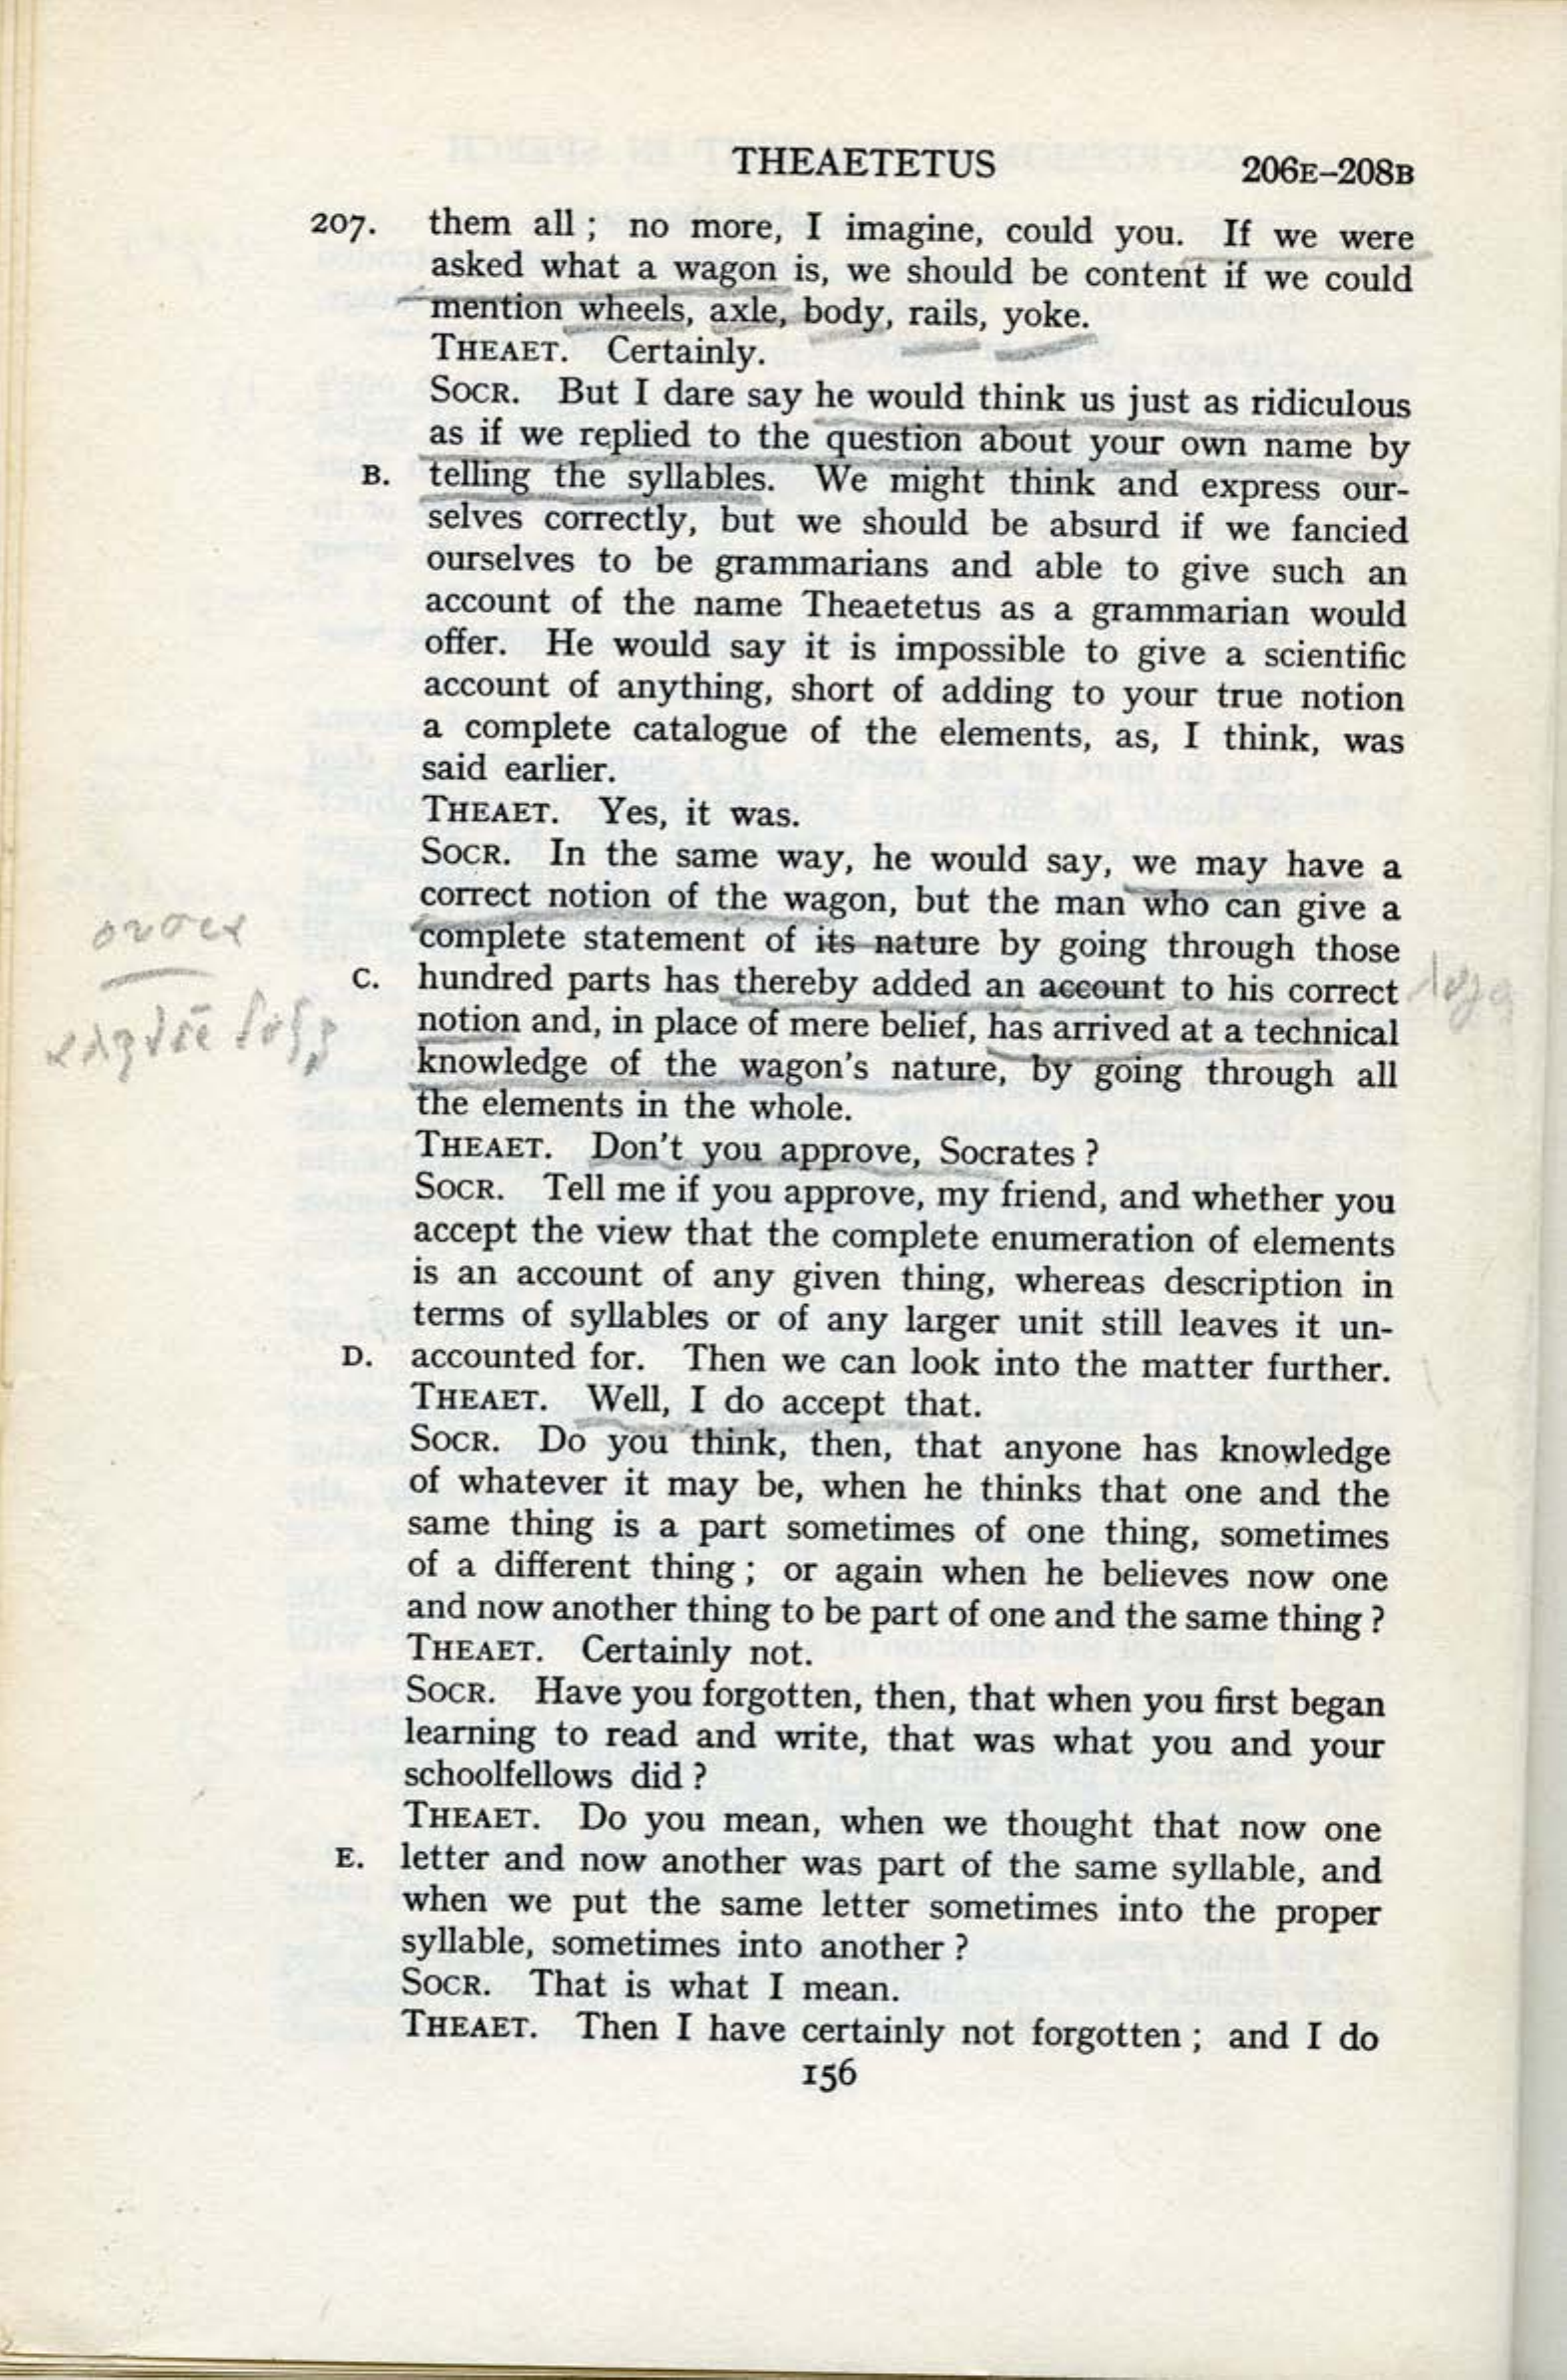 THEAETETUS 206E–208B
207. them all ; no more, I imagine, could you. If we were
asked what a wagon is, we should be content if we could
mention wheels, axle, body, rails, yoke.
THEAET. Certainly.
SOCR. But I dare say he would think us just as ridiculous
as if we replied to the question about your own name by
B. telling the syllables. We might think and express our-
selves correctly, but we should be absurd if we fancied
ourselves to be grammarians and able to give such an
account of the name Theaetetus as a grammarian would
offer. He would say it is impossible to give a scientific
account of anything, short of adding to your true notion
a complete catalogue of the elements, as, I think, was
said earlier.
THEAET. Yes, it was.
SOCR. In the same way, he would say, we may have a
correct notion of the wagon, but the man who can give a
complete statement of its nature by going through those
C. hundred parts has thereby added an account to his correct
notion and, in place of mere belief, has arrived at a technical
knowledge of the wagon's nature, by going through all
the elements in the whole.
THEAET. Don't you approve, Socrates ?
SOCR. Tell me if you approve, my friend, and whether you
accept the view that the complete enumeration of elements
is an account of any given thing, whereas description in
terms of syllables or of any larger unit still leaves it un-
D. accounted for. Then we can look into the matter further.
THEAET. Well, I do accept that.
SOCR. Do you think, then, that anyone has knowledge
of whatever it may be, when he thinks that one and the
same thing is a part sometimes of one thing, sometimes
of a different thing ; or again when he believes now one
and now another thing to be part of one and the same thing ?
THEAET. Certainly not.
SOCR. Have you forgotten, then, that when you first began
learning to read and write, that was what you and your
schoolfellows did ?
THEAET. Do you mean, when we thought that now one
E. letter and now another was part of the same syllable, and
when we put the same letter sometimes into the proper
syllable, sometimes into another ?
SOCR. That is what I mean.
THEAET. Then I have certainly not forgotten ; and I do
156